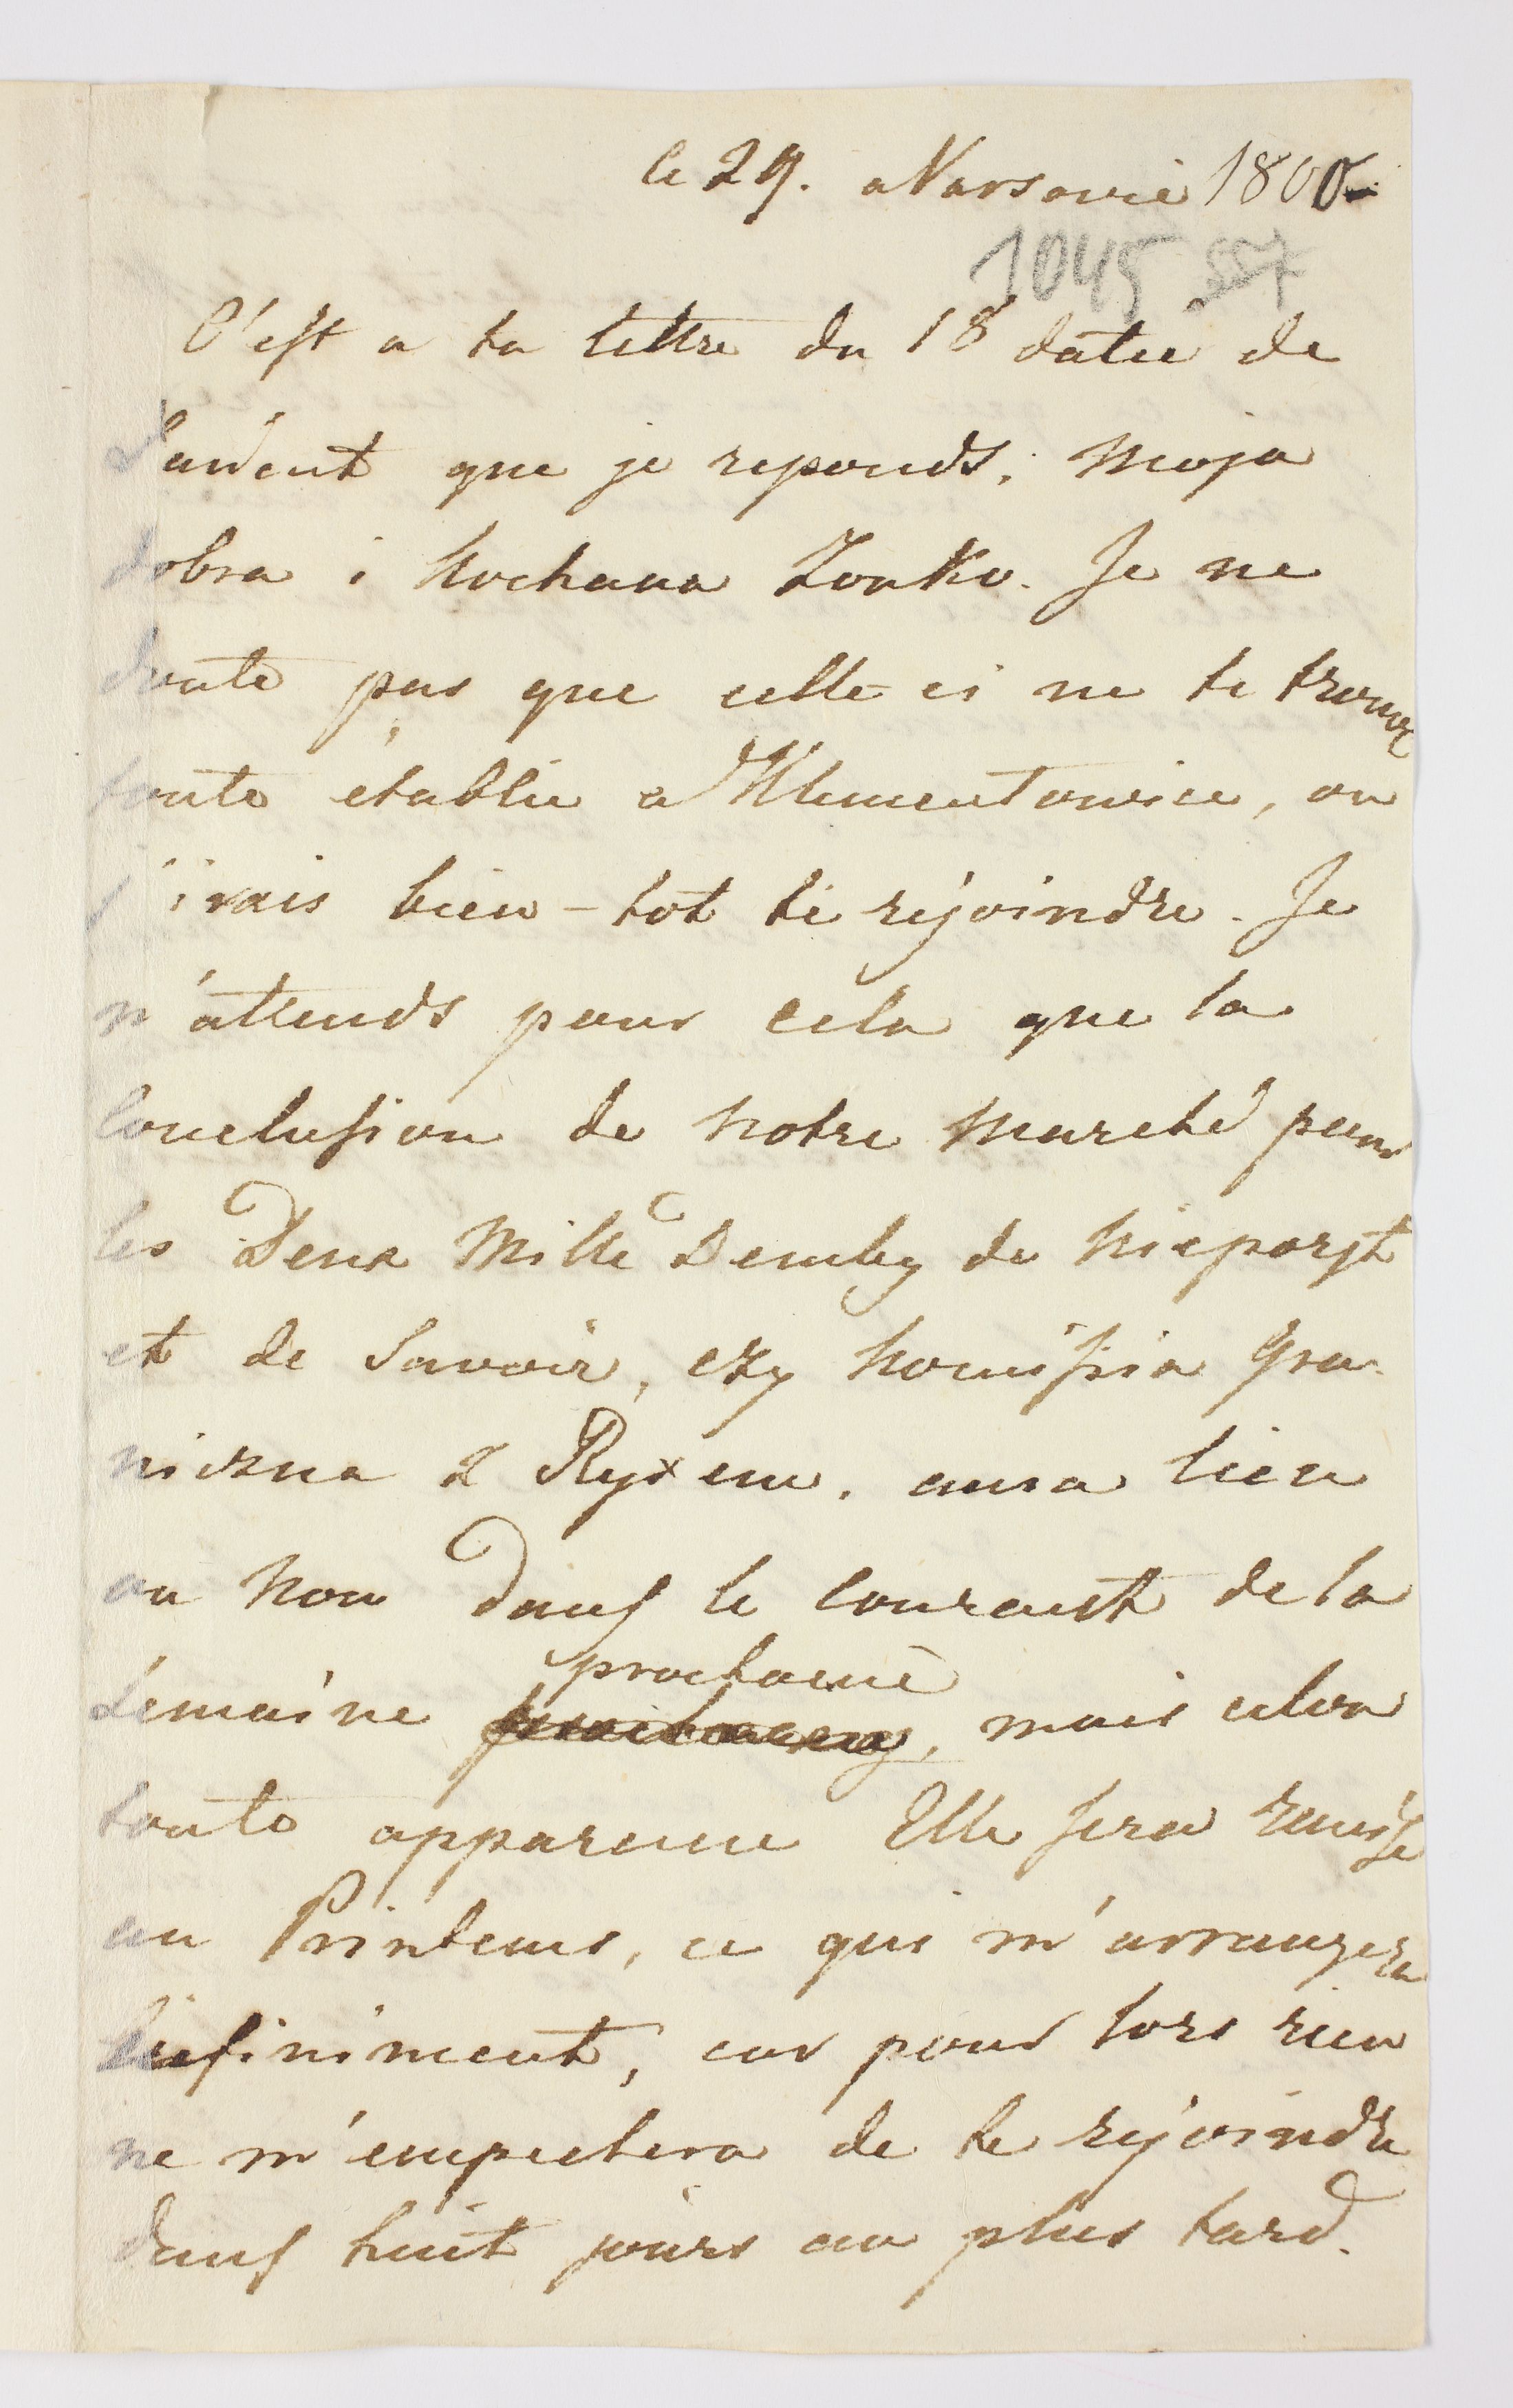 le 29. a Varsovie 1800
1045 557
C'est a ta lettre du 18 datée de
Lanïcut que je reponds, Moja
dobra i kochana Zonko. Je ne
doute pas que celle-ci ne te trouve
toute établie a Klementowice, ou
j'irais bien-tot te réjoindre. Je
n'attends pour cela que la
Conclusion de notre Marché pour
les Deux Mille Demby de Nieporęt
et de Savoir, czy komissia Gra-
niczna z Ryxem, aura lieu
ou non dans le courant de la
Semaine prochaine, mais selon
toute apparence Elle sera remise
au Printems, ce qui m'arrangera
infiniment, car pour lors rien
ne m'empechera de te réjoindre
dans huit jours au plus tard.